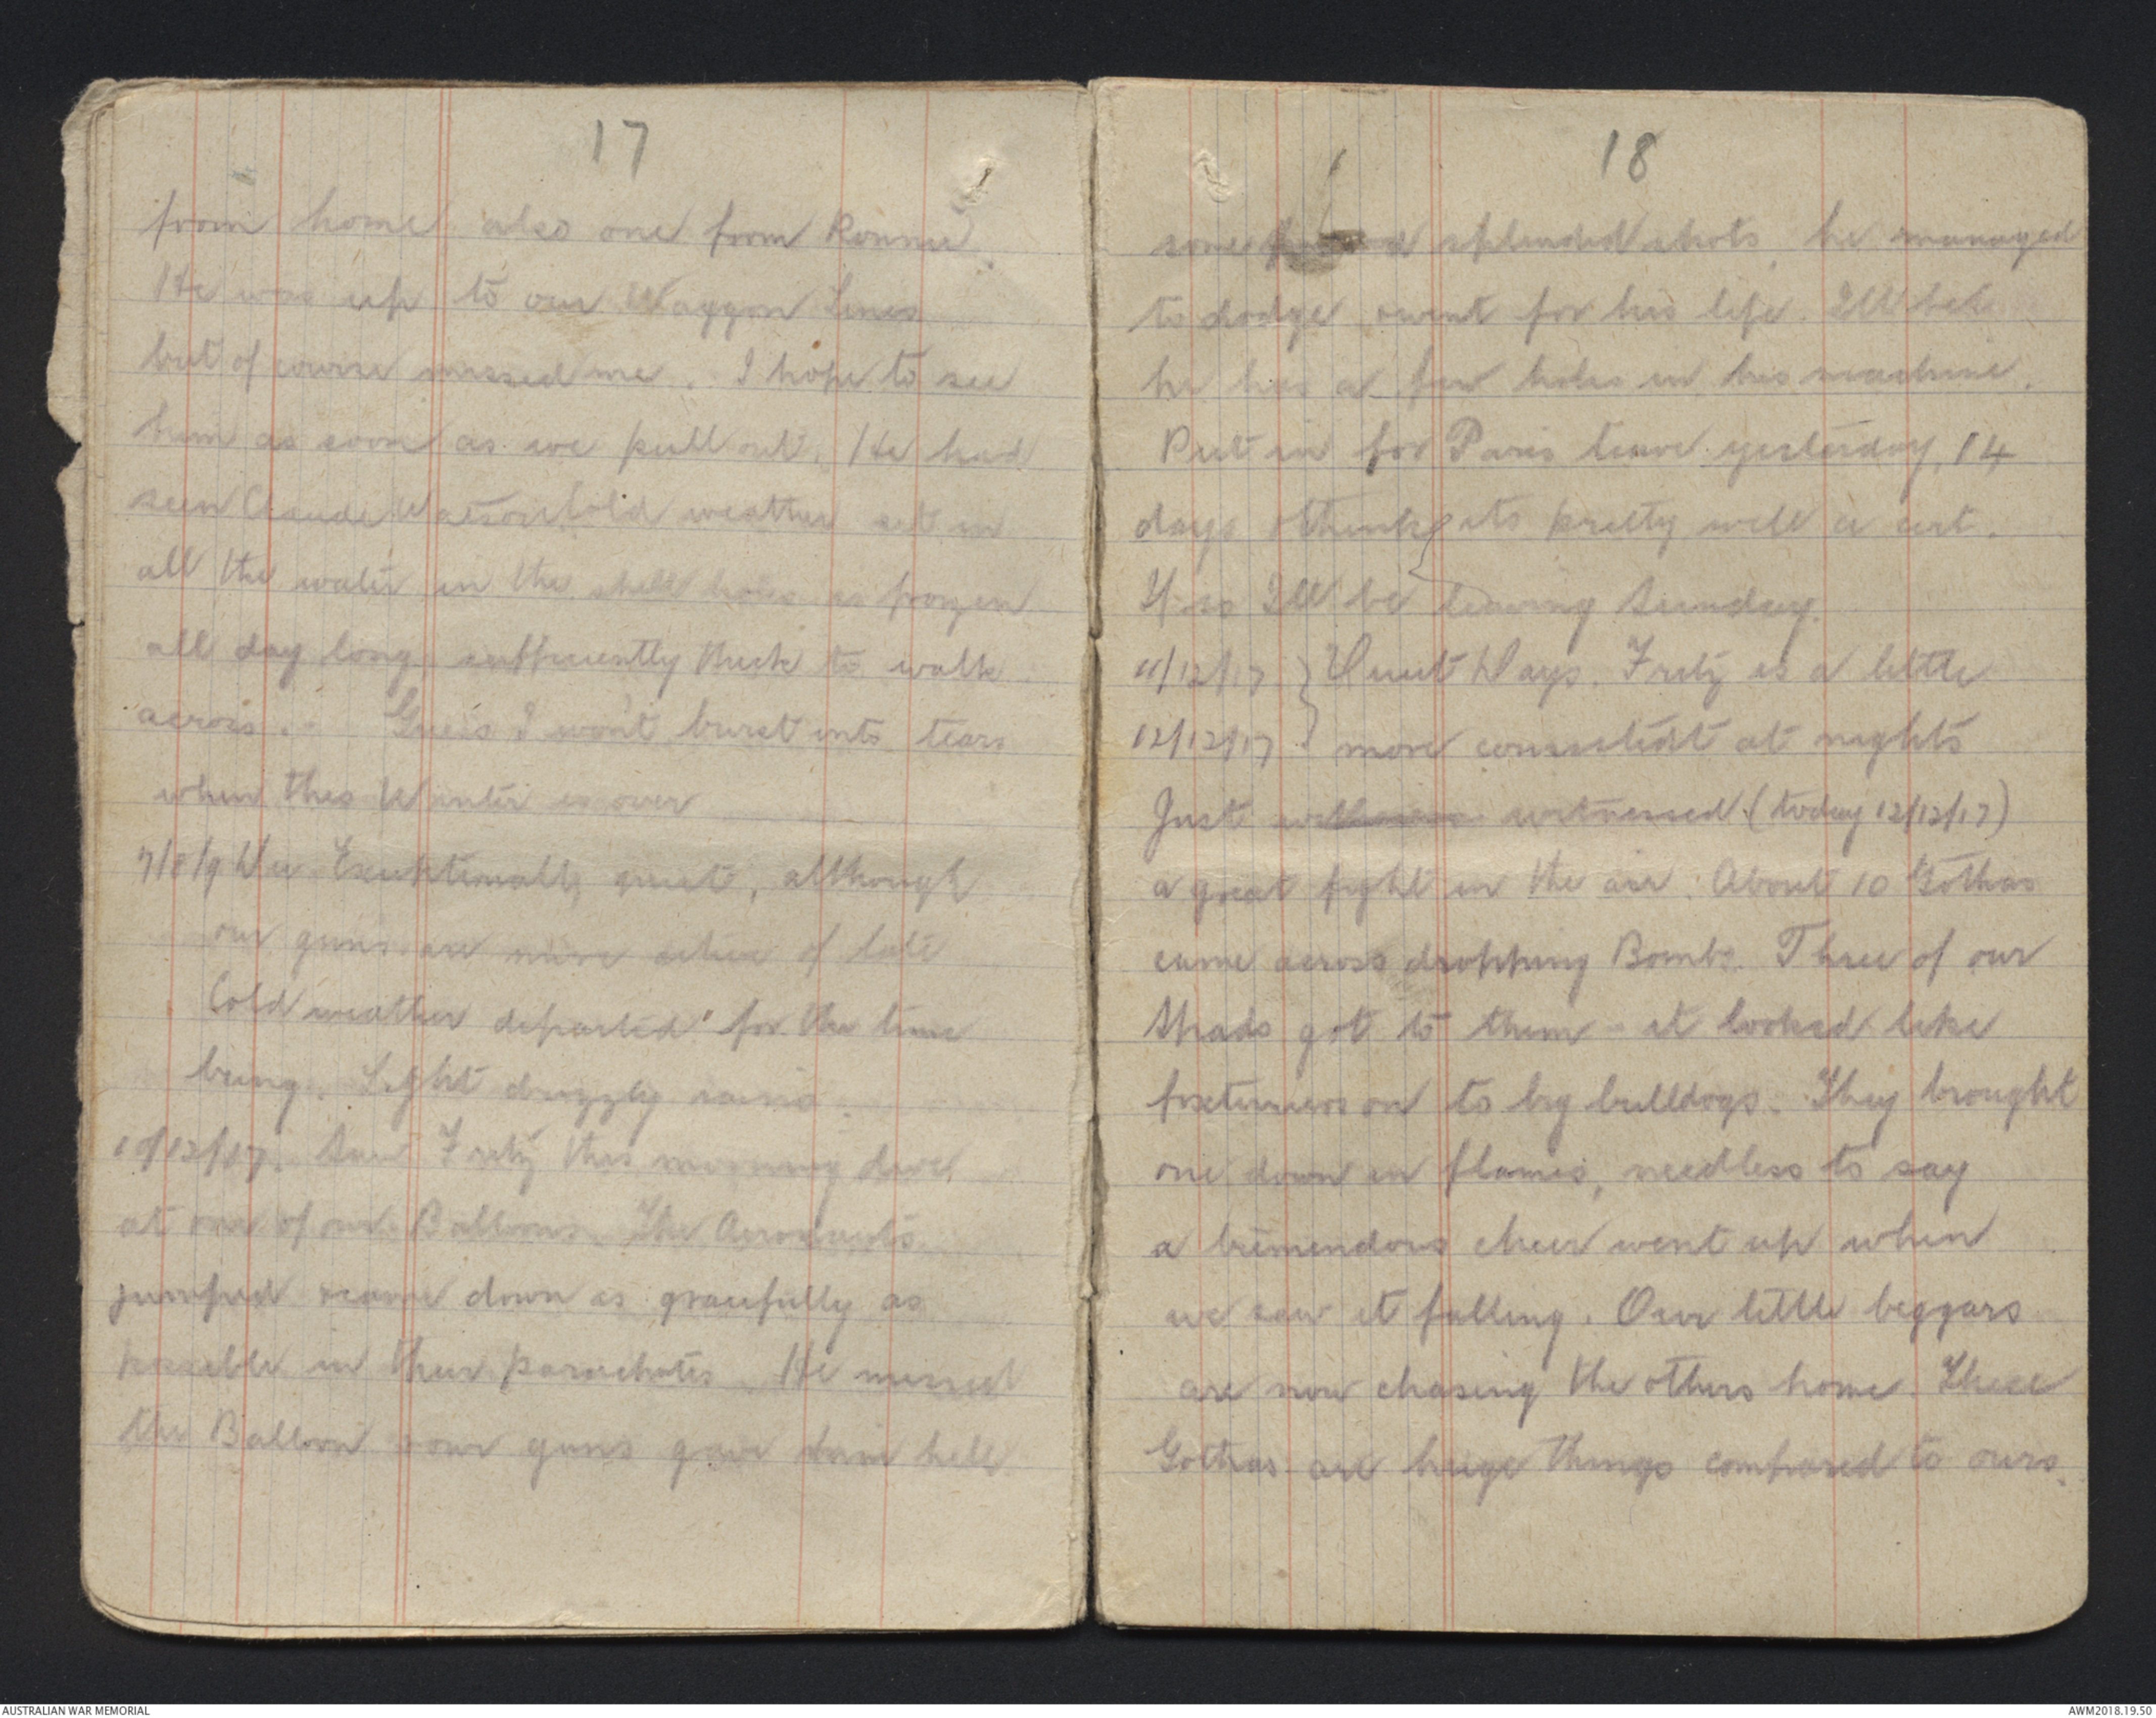 17
from home also one from Ronnie.
He was up to our Waggon Lines
but of course missed me. I hope to see
him as soon as we pull out. He had
seen Claude Watson Cold weather set in
all the water in the shell holes is frozen
all day long, sufficiently thick to walk
across. - Guess I won't burst into tears
when this Winter is over
7/8/9 Dec Exceptionally quiet, although
our guns are more active of late
Cold weather departed for the time
being. Light drizzly rains.
10/12/17. Saw Fritz this morning dive
at one of our Balloons. The Aeronauts
jumped & came down as gracefully as
possible in their parachutes. He missed
the Balloon & our guns gave him hell
18
some splendid shots, he managed
to dodge & went for his life. I'll bet
he has a few holes in his machine.
Put in for Paris leave yesterday, 14
days & think its pretty well a cert.
If so I'll be leaving Sunday.
11/12/17 } Quiet Days. Fritz is a little
12/12/17 } more at nights
Just witnessed (today 12/12/17)
a great fight in the air. About 10 Gothas
came across dropping Bombs. Three of our
Spads got to them - it looked like
foxterriers on to big bulldogs. They brought
one down in flames, needless to say
a tremendous cheer went up when
we saw it falling. Our little beggars
are now chasing the others home. These
Gothas are huge things compared to ours.
AUSTRALIAN WAR MEMORIAL
AWM2018.19.50